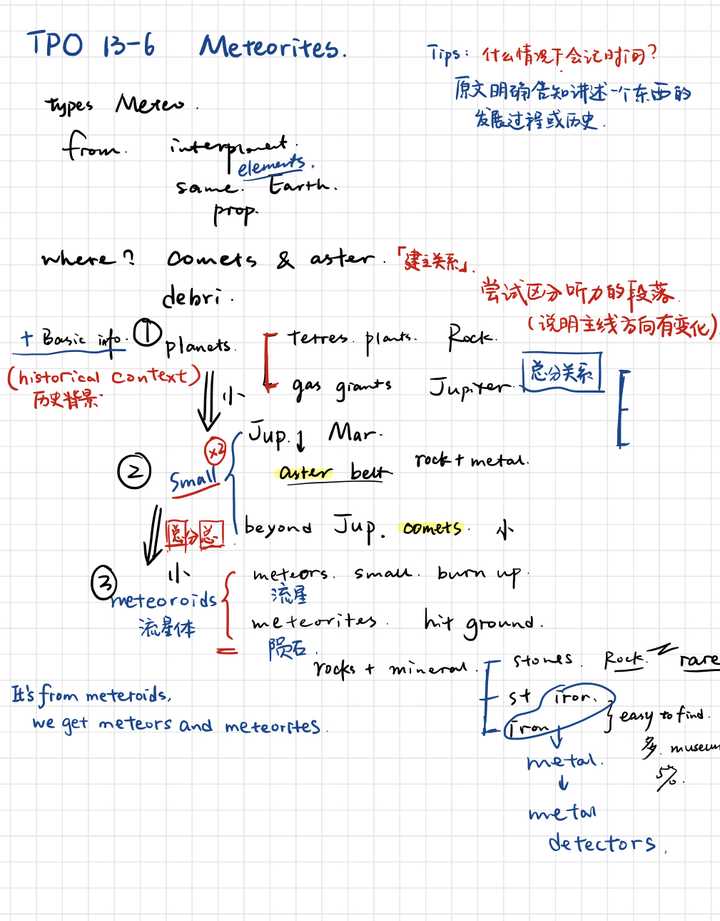 TPO 13-6 Meteorites.
Tips: 什么情况下会记时间?
原文明确告知讲述一个东西的
发展过程或历史.
types Meteo.
from. interplanet.
elements.
same. Earth.
prop.
where? comets & aster. 「建立关系」.
debri.
尝试区分听力的段落.
(说明主线方向有变化)
+ Basic info. ① planets.
(historical context)
历史背景
terres. plants. Rock.
gas giants Jupiter.
总分关系
小
② Small ×2
Jup. ↓ Mar.
aster belt rock + metal.
beyond Jup. comets. 小
总分总
小
③ meteoroids
流星体
meteors. small. burn up.
流星
meteorites. hit ground.
陨石.
rocks + mineral.
stones. Rock. rare
st iron.
iron
easy to find.
多. museum
5%.
metal.
↓
metal
detectors.
It's from meteroids,
we get meteors and meteorites.